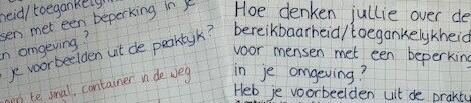 heid/toegankelijkh
sen met een beperking in je
n omgeving?
je voorbeelden uit de praktyk?
te smal, container in de weg
Hoe denken jullie over de
bereikbaarheid/toegankelykheid
voor mensen met een beperking
in je omgeving?
Heb je voorbeelden uit de praktyk